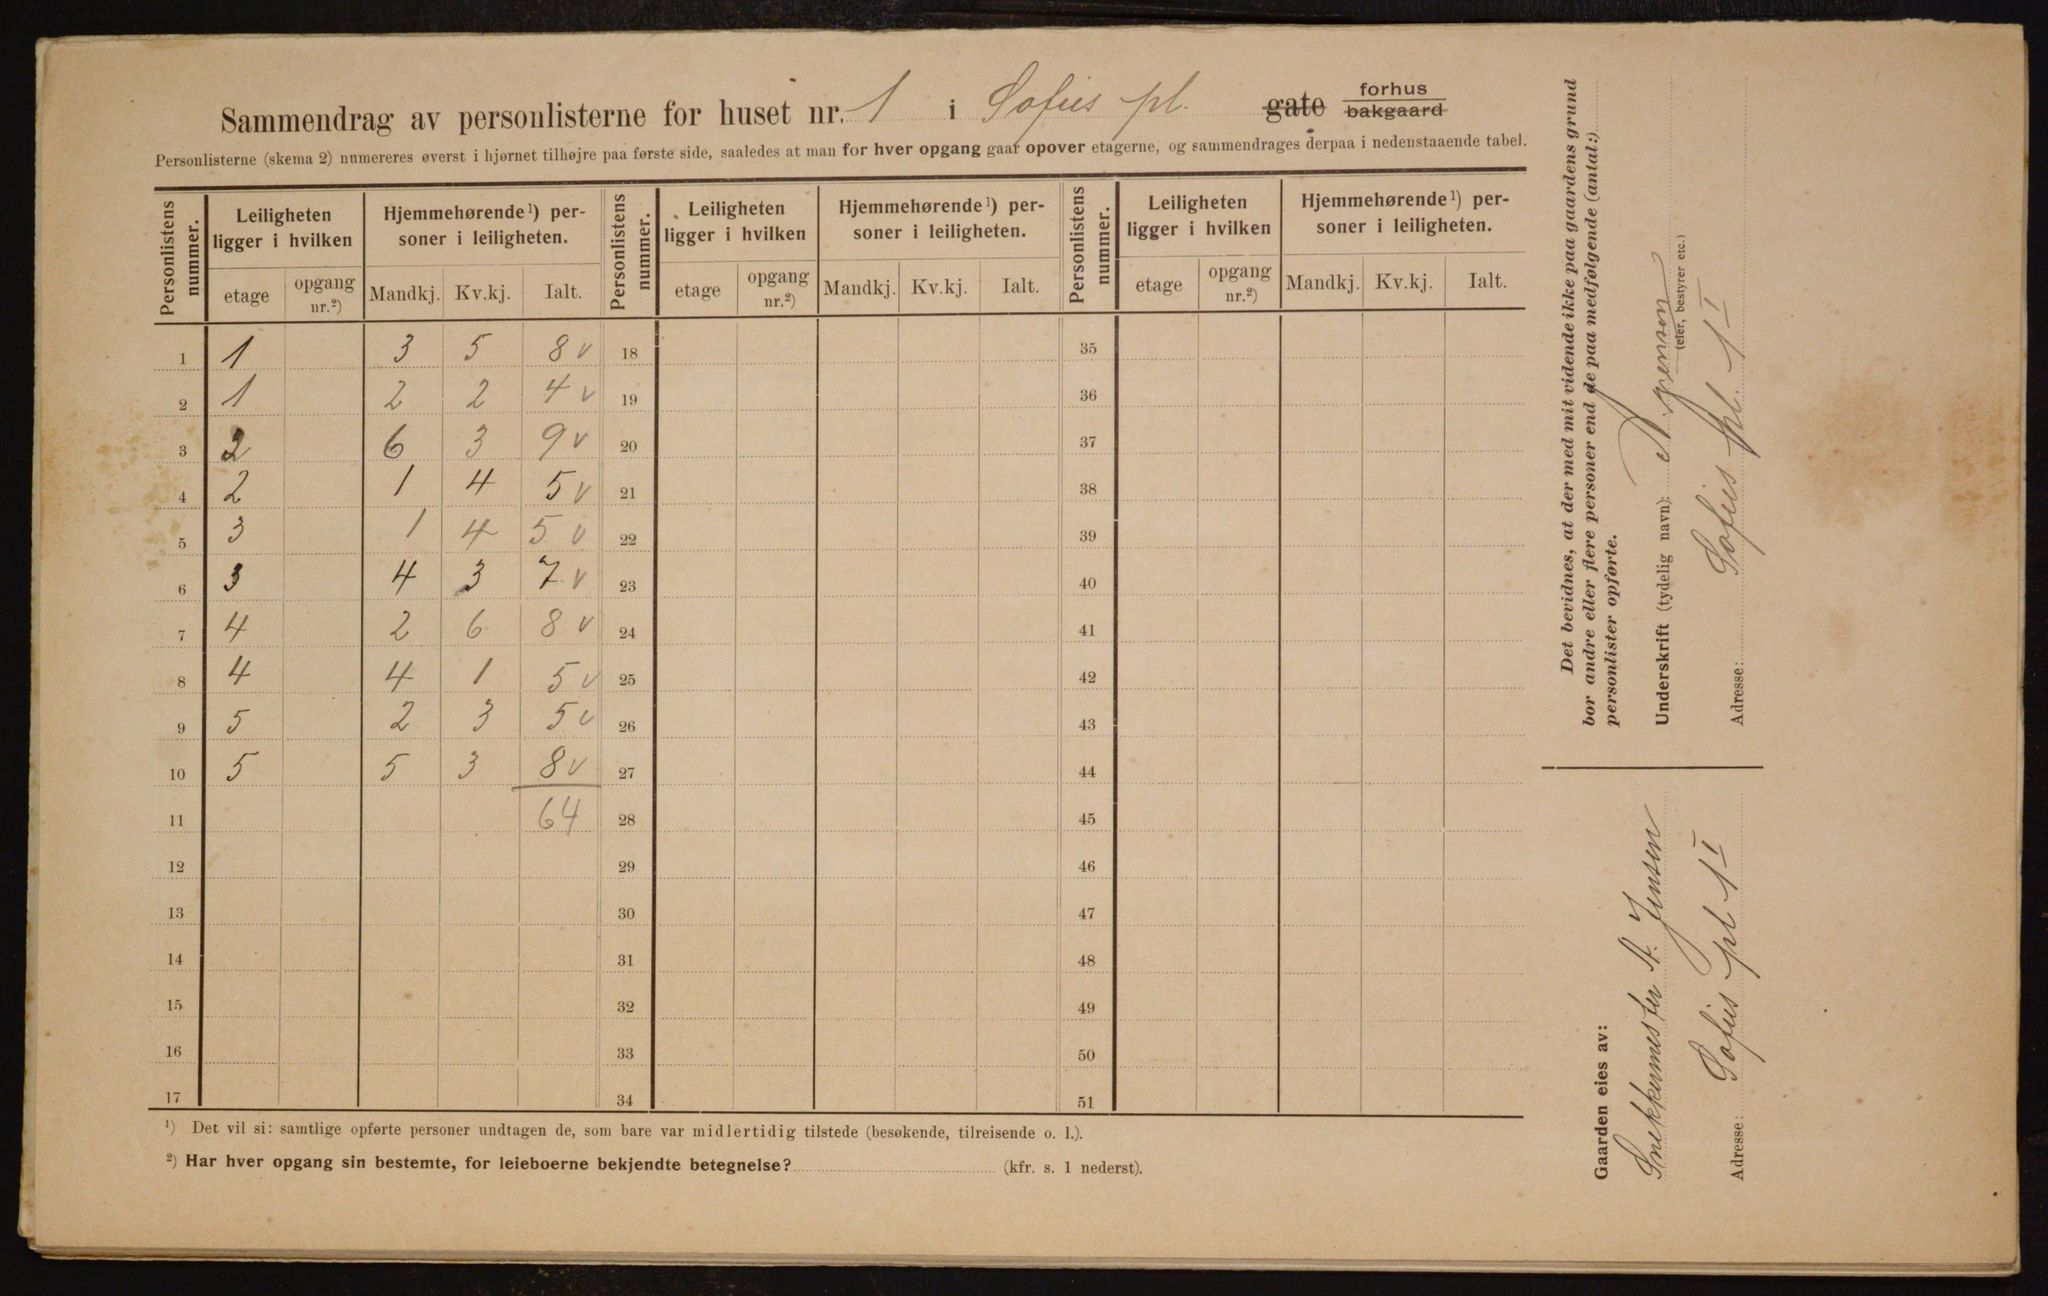 Sammendrag av personlisterne for huset nr. 1 i Sofies pl. gate forhus
bakgaard
Personlisterne (skema 2) numereres øverst i hjørnet tilhøjre paa første side, saaledes at man for hver opgang gaar opover etagerne, og sammendrages derpaa i nedenstaaende tabel.
Personlistens nummer. Leiligheten ligger i hvilken Hjemmehørende¹) personer i leiligheten. Personlistens nummer. Leiligheten ligger i hvilken Hjemmehørende¹) personer i leiligheten. Personlistens nummer. Leiligheten ligger i hvilken Hjemmehørende¹) personer i leiligheten.
etage opgang nr.²) Mandkj. Kv.kj. Ialt. etage opgang nr.²) Mandkj. Kv.kj. Ialt. etage opgang nr.²) Mandkj. Kv.kj. Ialt.
1 1 3 5 8 v 18 35
2 1 2 2 4 v 19 36
3 2 6 3 9 v 20 37
4 2 1 4 5 v 21 38
5 3 1 4 5 v 22 39
6 3 4 3 7 v 23 40
7 4 2 6 8 v 24 41
8 4 4 1 5 v 25 42
9 5 2 3 5 v 26 43
10 5 5 3 8 v 27 44
11 64 28 45
12 29 46
13 30 47
14 31 48
15 32 49
16 33 50
17 34 51
¹) Det vil si: samtlige opførte personer undtagen de, som bare var midlertidig tilstede (besøkende, tilreisende o. l.).
²) Har hver opgang sin bestemte, for leieboerne bekjendte betegnelse? (kfr. s. 1 nederst).
Det bevidnes, at der med mit vidende ikke paa gaardens grund
bor andre eller flere personer end de paa medfølgende (antal:)
personlister opførte.
Underskrift (tydelig navn): A. Jensen
(eier, bestyrer etc.)
Adresse: Sofies pl. 1 I
Gaarden eies av:
Snekkermester A. Jensen
Adresse: Sofies pl 1 I